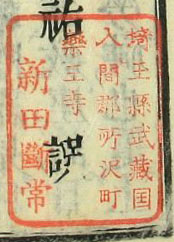 埼玉縣武藏国
入間郡所沢町
藥王寺
新田斷常
祐
誤